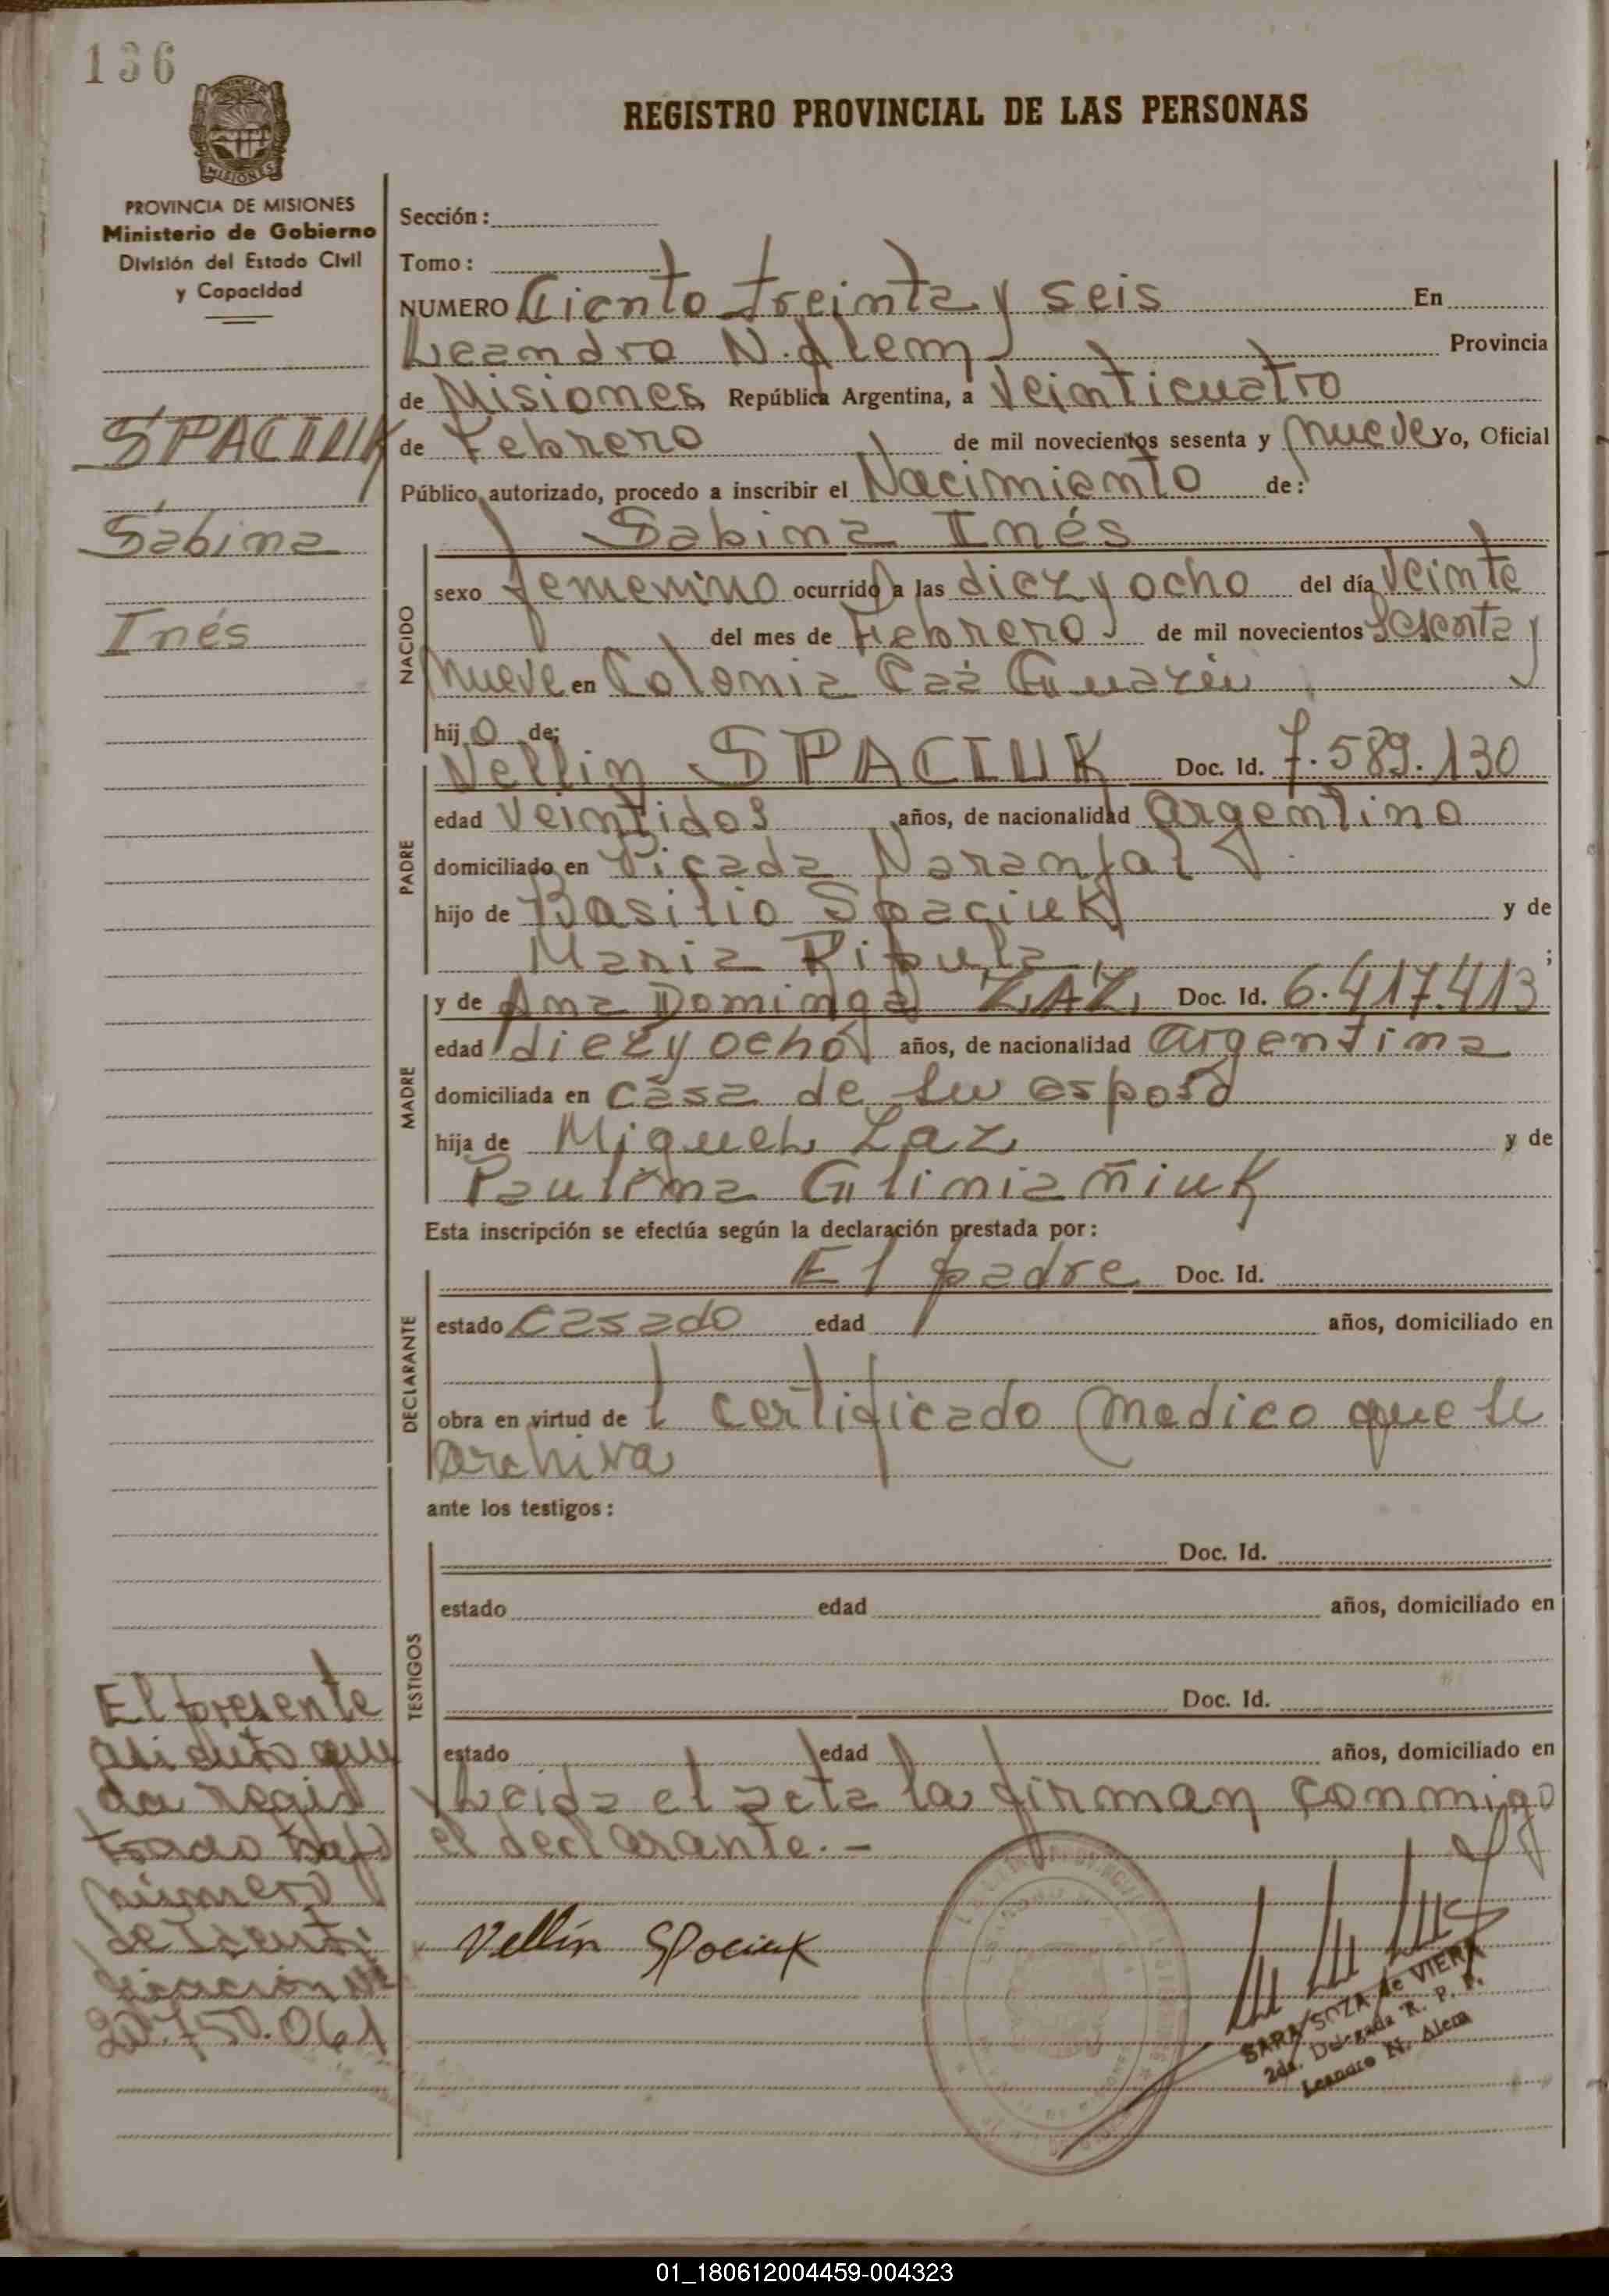 136
REGISTRO PROVINCIAL DE LAS PERSONAS
MISIONES
PROVINCIA DE MISIONES
Ministerio de Gobierno
División del Estado Civil
y Capacidad
SPACIUK
Sabina
Inés
Sección:
Tomo:
NUMERO Ciento treinta y seis En
Leandro N. Alem Provincia
de Misiones República Argentina, a Veinticuatro
de Febrero de mil novecientos sesenta y nueve Yo, Oficial
Público autorizado, procedo a inscribir el Nacimiento de:
Sabina Inés
NACIDO
sexo femenino ocurrido a las diez y ocho del día Veinte
del mes de Febrero de mil novecientos Sesenta y
nueve en Colonia Caá Guazú
hijo de:
PADRE
Vellin SPACIUK Doc. Id. 7.589.130
edad Veintidos años, de nacionalidad argentino
domiciliado en Picada Naranjal
hijo de Basilio Spaciuk y de
Maria Ripula ;
MADRE
y de Ana Dominga ZAZ Doc. Id. 6.417.413
edad diez y ocho años, de nacionalidad argentina
domiciliada en casa de su esposo
hija de Miguel Zaz y de
Paulina Glimiañiuk
Esta inscripción se efectúa según la declaración prestada por:
DECLARANTE
El padre Doc. Id.
estado casado edad años, domiciliado en
obra en virtud de l certificado medico que se
archiva
ante los testigos:
TESTIGOS
Doc. Id.
estado edad años, domiciliado en
Doc. Id.
estado edad años, domiciliado en
Leida el acta la firman conmigo
el declarante.-
Vellin Spaciuk
SARA SOZA de VIERA
2da. Delegada R. P. P.
Leandro N. Alem
El presente
asiento que
da regis
trado bajo
número
de Identi
ficación Nº
20.750.061
01_180612004459-004323